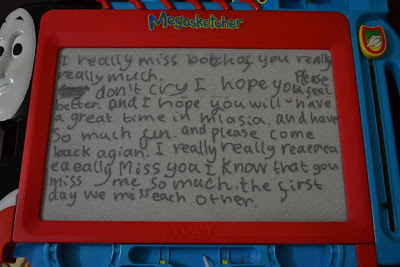 Megasketcher
I really miss both of you really
really much. Please
don't cry I hope you feel
better. and I hope you will have
a great time in mlasia. and have
so much fun. and please come
back agian. I really really reaeaea
eaeally Miss you I know that you
miss me so much. the first
day we miss each other.